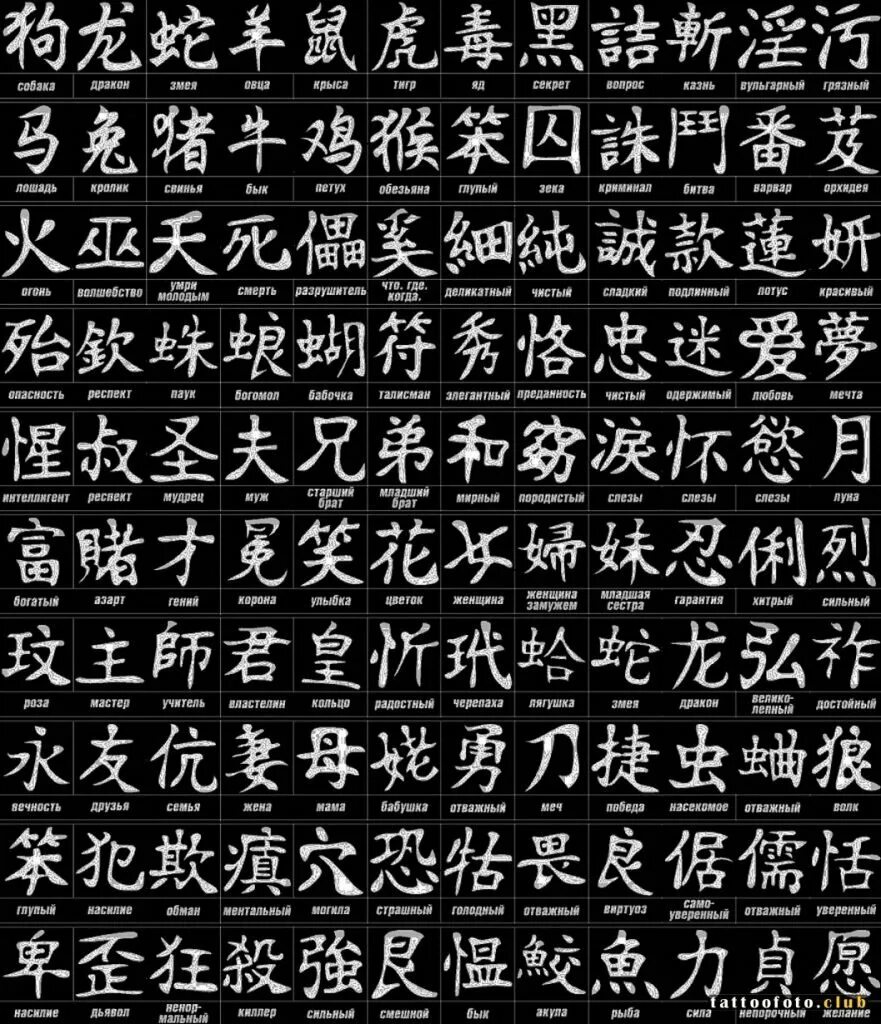 狗 龙 蛇 羊 鼠 虎 毒 黑 詰 斬 淫 污
собака дракон змея овца крыса тигр яд секрет вопрос казнь вульгарный грязный
马 兔 猪 牛 鸡 猴 笨 囚 誅 鬥 番 芨
лошадь кролик свинья бык петух обезьяна глупый зека криминал битва варвар орхидея
火 巫 天 死 儡 奚 細 純 誠 款 蓮 妍
огонь волшебство умри молодым смерть разрушитель что. где. когда. деликатный чистый сладкий подлинный лотус красивый
殆 欽 蛛 蜋 蝴 符 秀 恪 忠 迷 爱 夢
опасность респект паук богомол бабочка талисман элегантный преданность чистый одержимый любовь мечта
惺 叔 圣 夫 兄 弟 和 窈 淚 怀 慾 月
интеллигент респект мудрец муж старший брат младший брат мирный породистый слезы слезы слезы луна
富 賭 才 冕 笑 花 女 婦 妹 忍 俐 烈
богатый азарт гений корона улыбка цветок женщина женщина замужем младшая сестра гарантия хитрый сильный
玟 主 師 君 皇 忻 玳 蛤 蛇 龙 弘 祚
роза мастер учитель властелин кольцо радостный черепаха лягушка змея дракон велико-лепный достойный
永 友 伉 妻 母 姥 勇 刀 捷 虫 蛐 狼
вечность друзья семья жена мама бабушка отважный меч победа насекомое отважный волк
笨 犯 欺 瘨 穴 恐 牯 畏 良 倨 儒 恬
глупый насилие обман ментальный могила страшный голодный отважный виртуоз само-уверенный отважный уверенный
卑 歪 狂 殺 強 艮 愠 鮫 魚 力 貞 愿
насилие дьявол ненор-мальный киллер сильный смешной бык акула рыба сила непорочный желание
tattoofoto.club